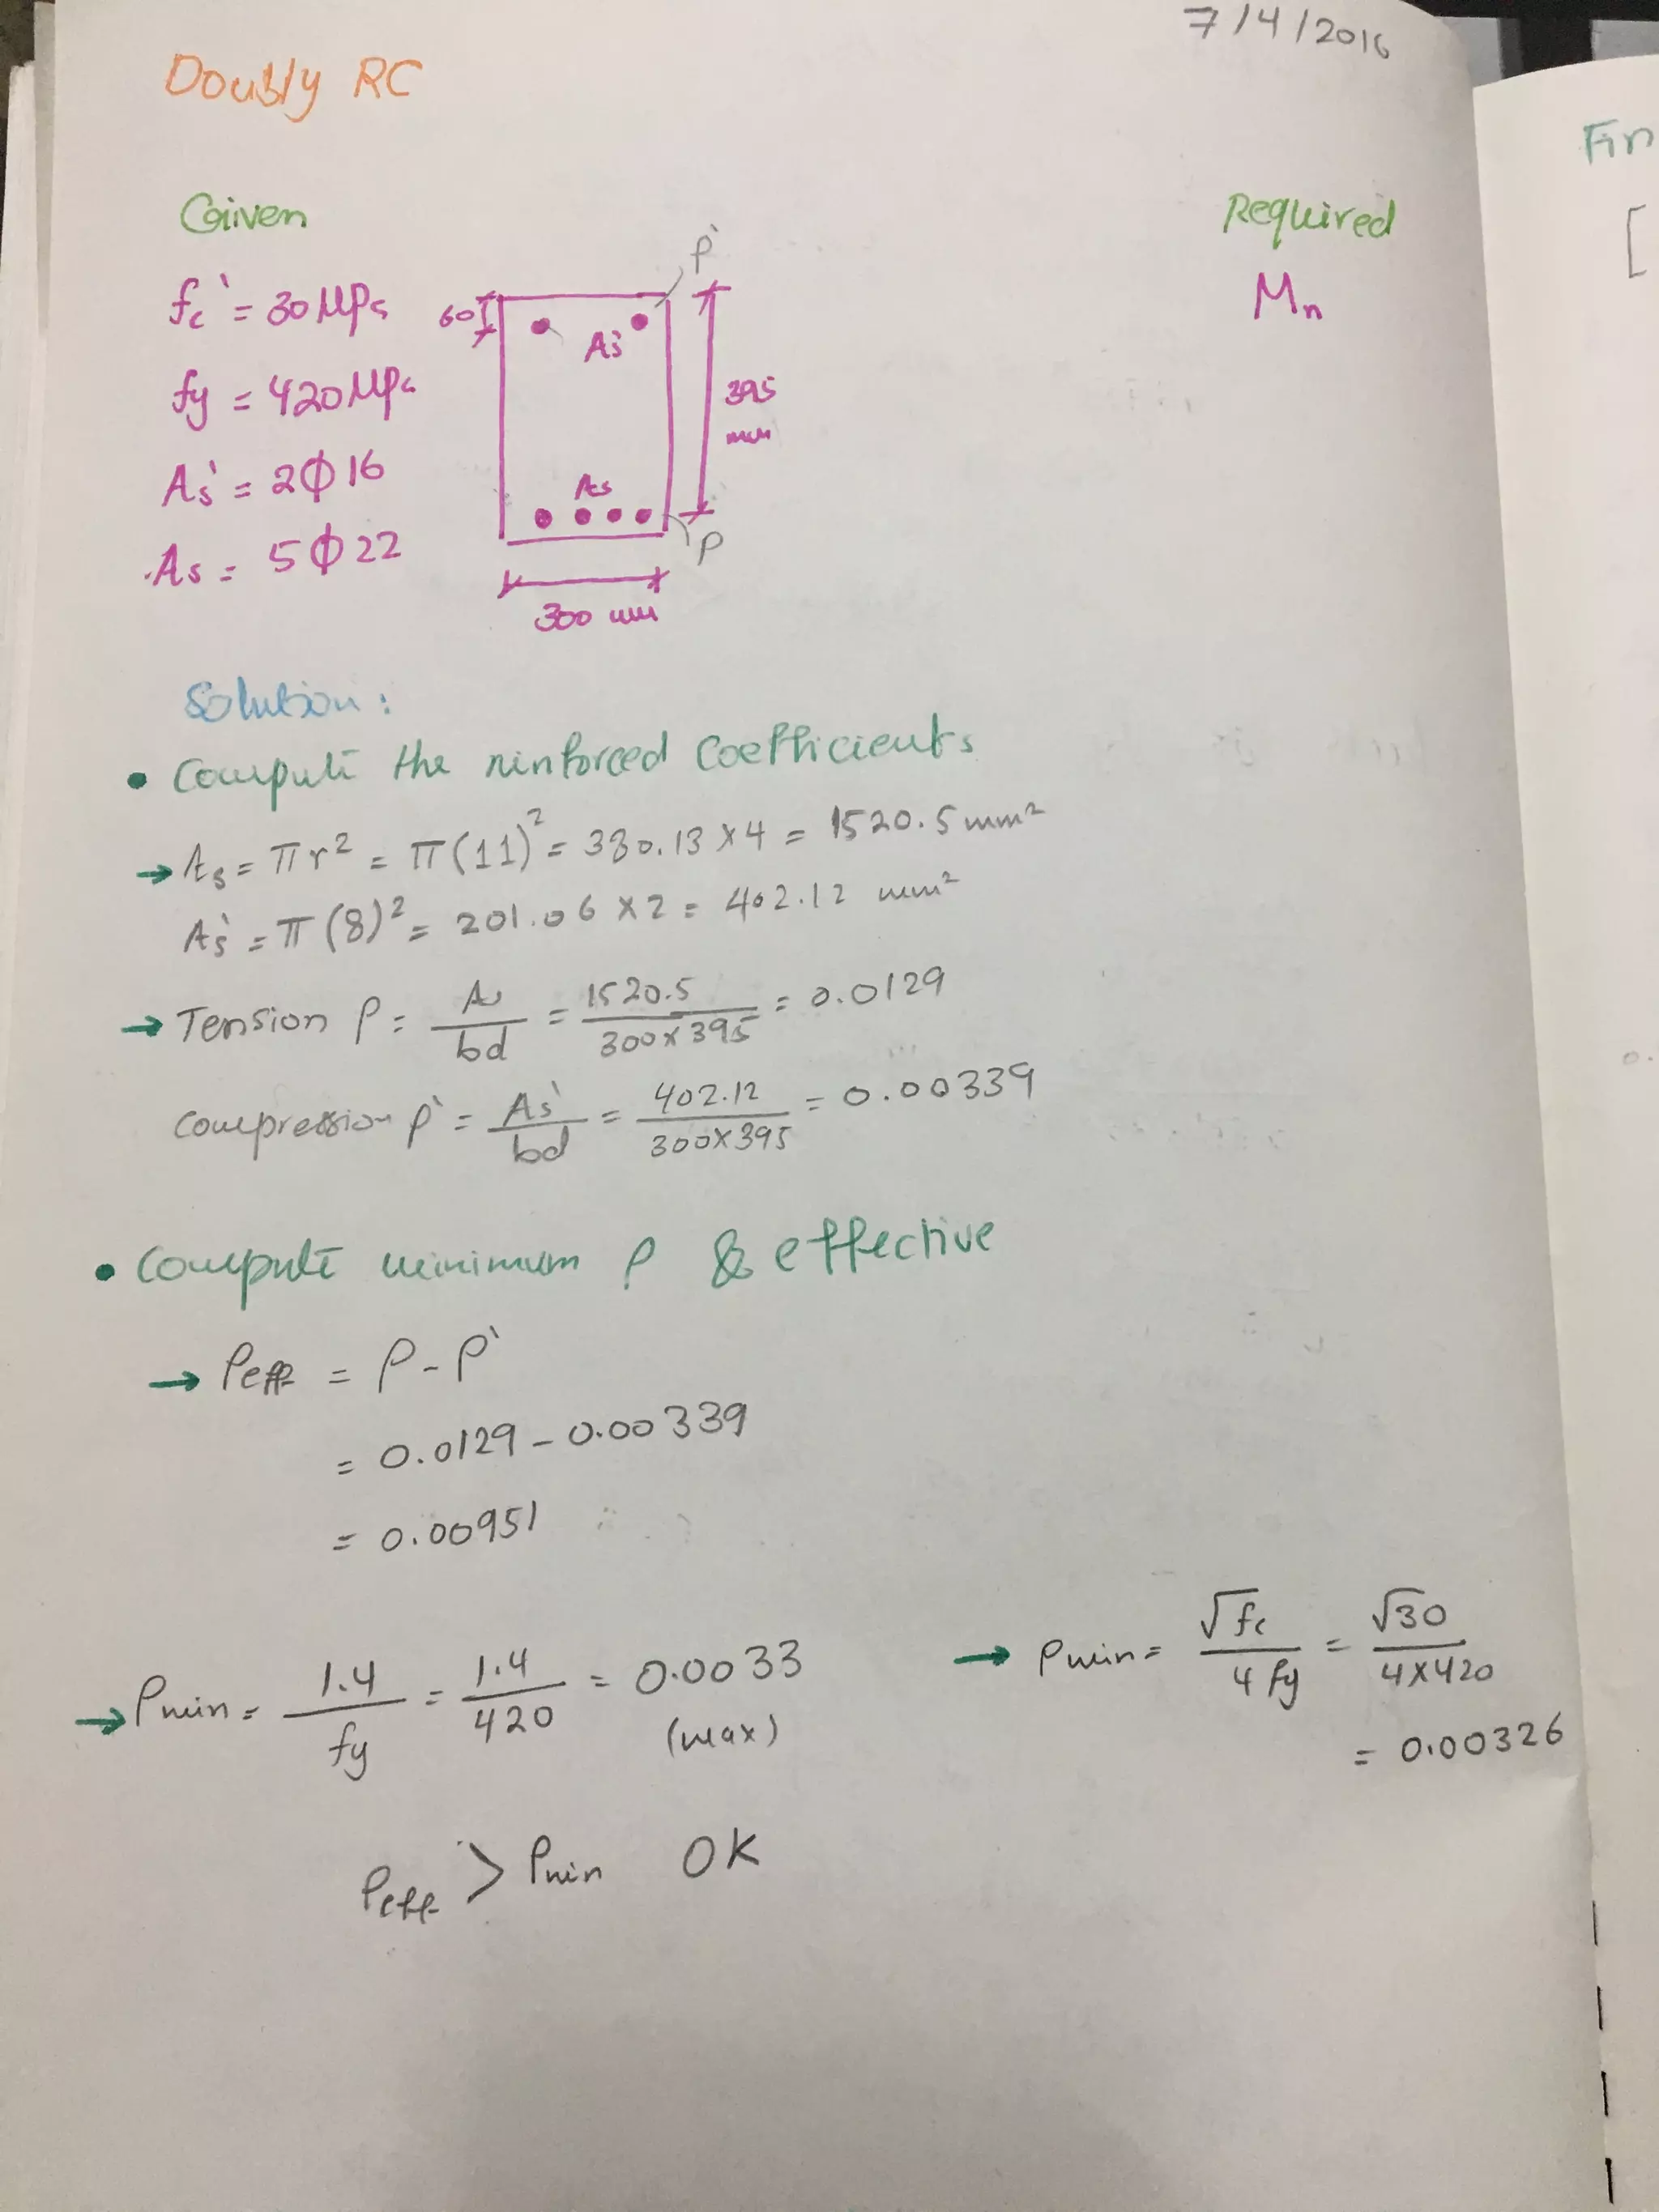 7/4/2016
Doubly RC
Given
Required
fc` = 30 MPa
Mn
fy = 420 MPa
As` = 2Φ16
As = 5Φ22
ρ`
60
As`
395
mm
As
ρ
300 mm
Solution:
• Compute the rinforced coefficients
→ As = πr² = π(11)² = 380.13 × 4 = 1520.5 mm²
As` = π(8)² = 201.06 × 2 = 402.12 mm²
→ Tension ρ = As/bd = 1520.5/300×395 = 0.0129
Compression ρ` = As`/bd = 402.12/300×395 = 0.00339
• Compute minimum ρ & effective
→ ρeff = ρ - ρ`
= 0.0129 - 0.00339
= 0.00951
→ ρmin = 1.4/fy = 1.4/420 = 0.0033
(max)
→ ρmin = √fc/4fy = √30/4×420
= 0.00326
ρeff > ρmin OK
Fin
[